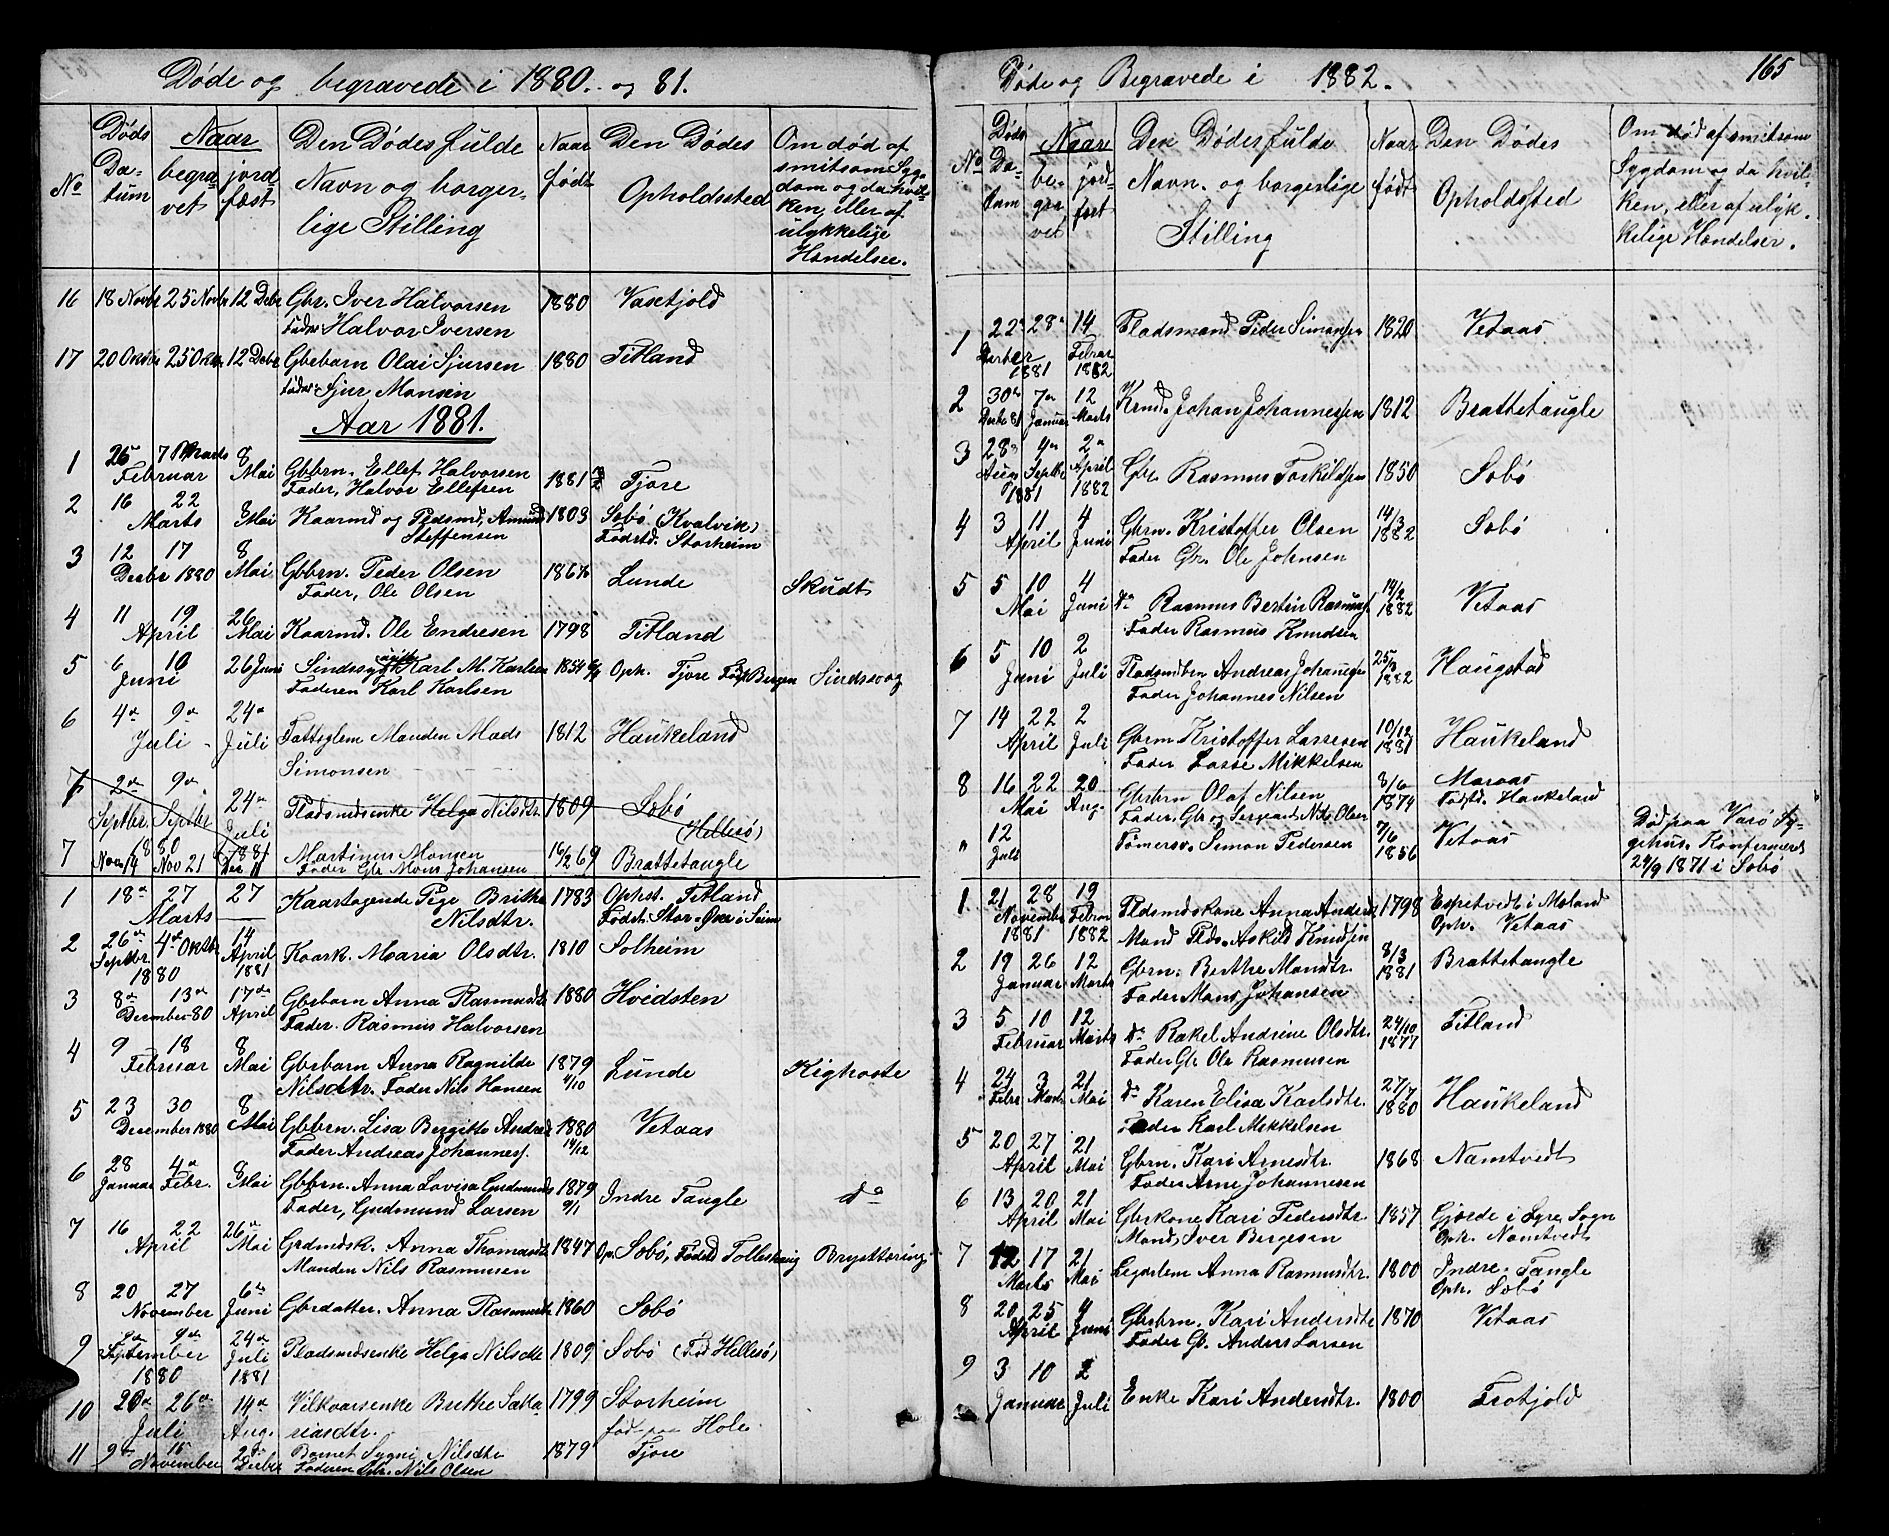 Døde og begravede i 1880. og 81.
No
Døds Datum
Naar
begravet
jordfæst
Den Dødes fulde Navn og borgerlige Stilling
Naar født
Den Dødes Opholdssted
Om død af smitsom Sygdom og da hvilken, eller af ulykkelige Hændelser.
16 18 Novbr 25 Novbr 12 Debr Gbr. Iver Halvorsen 1880 Vasetjold
Fader Halvor Iversen
17 20 Oktbr 25 Oktbr 12 Debr Gbrbarn Olai Sjursen 1880 Titland
Fader Sjur Monsen
Aar 1881.
1 25 Februar 7 Marts 8 Mai Gbbrn. Ellef Halvorsen 1881 Tjore
Fader, Halvor Ellefsen
2 16 22 Marts 8 Mai Kaarmd og Pladsmd, Amund 1803 Sæbø (Kvalvik)
Steffensen Fødstd. Storheim
3 12 17 Decbr 1880 8 Mai Gbbrn. Peder Olsen Lunde Skudt
Fader, Ole Olsen
4 11 19 April 26 Mai Kaarmd. Ole Endresen 1798 Titland
5 6 10 Juni 26 Juni Sindssyg Karl M. Karlsen 1854 Oph. Tjore Født Bergen Sindssvag
Faderen Karl Karlsen
6 4de 9de Juli 24de Juli Fattiglem Manden Mads 1812 Haukeland
Simonsen
7 2de Septbr. 9de Septbr 1880 24de Juli 1881 Pladsmdsenke Helga Nilsdtr. 1809 Sæbø
(Hellesø)
7 Nov 14 Nov 21 Dec 11 Martinus Monsen 16/2 69 Brattetaugle
Fader Gbr Mons Johansen
1 18de 27 Marts 27 Kaartagende Pige Brithe 1783 Ophst. Titland
Nilsdtr. Fødst. Stor-Øxe i Seim
2 26de Septbr 4de Oktbr 1880 14 April 1881 Kaark. Maria Olsdtr. 1810 Solheim
3 8de 13de December 80 17de April Gbrbarn Anna Rasmusdtr 1880 Hvidsten
Fader. Rasmus Halvorsen
4 9 18 Februar 8 Mai Gbrbarn Anna Ragnilde 1879 Lunde Kighoste
Nilsdtr. Fader Nils Hansen
5 23 30 December 1880 8 Mai Gbbrn. Lisa Bergitte Andrea 1880 14/12 Vetaas
Fader Andreas Johannesf.
6 28 Januar 4de Febr. 8 Mai Gbbrn. Anna Lovisa Gudmunds 1879 9/1 Indre Taugle do
Fader, Gudmund Larsen
7 16 22 April 26de Mai Grdmdsk. Anna Thomasdtr 1847 Op. Sæbø, Fødstd Tolleshaug Brysttæring
Manden Nils Rasmussen
8 20 27 November 6te Juni Gbrdatter. Anna Rasmusdtr 1860 Sæbø
9 2de 9de September 1880 24de Juli 1881 Pladsmdsenke Helga Nilsdtr 1809 Sæbø (Fød Hellesø)
10 20de 26de Juli 14de Aug. Vilkaarsenke Berthe Saka- 1799 Storheim
riasdtr. fød paa Hole
11 9de 15 November Decbr Barnet Sygni Nilsdtr 1879 Tjore
Faderen Gbr. Nils Olsen
Døde og Begravede i 1882.
165
No
Døds Datum
Naar
begravet
jordfæst
Den Dødes fulde Navn. og borgerlige Stilling
Naar født
Den Dødes Opholdssted
Om død af smitsom Sygdom og da hvilken, eller af ulykkelige Hændelser.
1 22de 28de Decbr 1881 14 Februar 1882 Pladsmand Peder Simonsen 1820 Vetaas
2 30te Decbr 81 7de Januar 12 Marts Krmd. Johan Johannessen 1812 Brattetaugle
3 28de Aug 1881 4de Septbr 2de April 1882 Gbr. Rasmus Torkildsen 1850 Sæbø
4 3 11 April 4 Juni Gbrn. Kristoffer Olsen 14/3 1882 Sæbø
Fader Gbr. Ole Johnsen
5 5 10 Mai 4 Juni do Rasmus Bertin Rasmusf. 14/2 1882 Vetaas
Fader Rasmus Knudsen
6 5 10 Juni 2 Juli Pladsmdbrn Andreas Johannesen 25/3 1882 Haugstad
Fader Johannes Nilsen
7 14 22 April 2 Juli Gbrn Kristoffer Lassesen 10/12 1881 Haukeland
Fader Lasse Mikkelsen
8 16 22 Mai 20 Aug. Gbrbrn Olaf Nilsen 8/6 1874 Maraas
Fader, Gbr og Sergeant Nils Olsen Fødstd. Haukeland
" 12 Juli Tømersv. Simon Pedersen 7/6 1856 Vetaas
Død paa Varø Sygehus. Konfirmeret 24/9 1871 i Sæbø
1 21 28 November 1881 19 Februar 1882 Pldsmdskone Anna Andersd 1798 Espetvedt i Mæland
Mand Plds. Askild Knudsen Oph. Vetaas
2 19 26 Januar 12 Marts Gbrn. Berthe Monsdtr. 8/3 1881 Brattetangle
Fader Mons Johansen
3 5 10 Februar 12 Marts do Rakel Andrine Olsdtr. 24/10 1877 Titland
Fader Gbr Ole Rasmussen
4 24 Febr 3 Marts 21 Mai do Karen Elisa Karlsdtr. 27/7 1880 Haukeland
Fader Karl Mikkelsen
5 20 27 April 21 Mai Gbrn. Kari Arnesdtr. 1868 Namtvedt
Fader Arne Johannesen
6 13 20 April 21 Mai Gbrkone Kari Pedersdtr. 1857 Gjørde i Eyre Sogn
Mand, Iver Birgesen Oph. Namtvedt
7 12 17 Marts 21 Mai Legdslem Anna Rasmusdtr. 1800 Indre. Tangle
Oph. Sæbø
8 20 25 April 4 Juni Gbrbrn. Kari Andersdtr 1870 Vetaas
Fader Gb. Anders Larsen
9 3 10 Januar 2 Juli Enke Kari Andersdtr. 1800 Trotjold